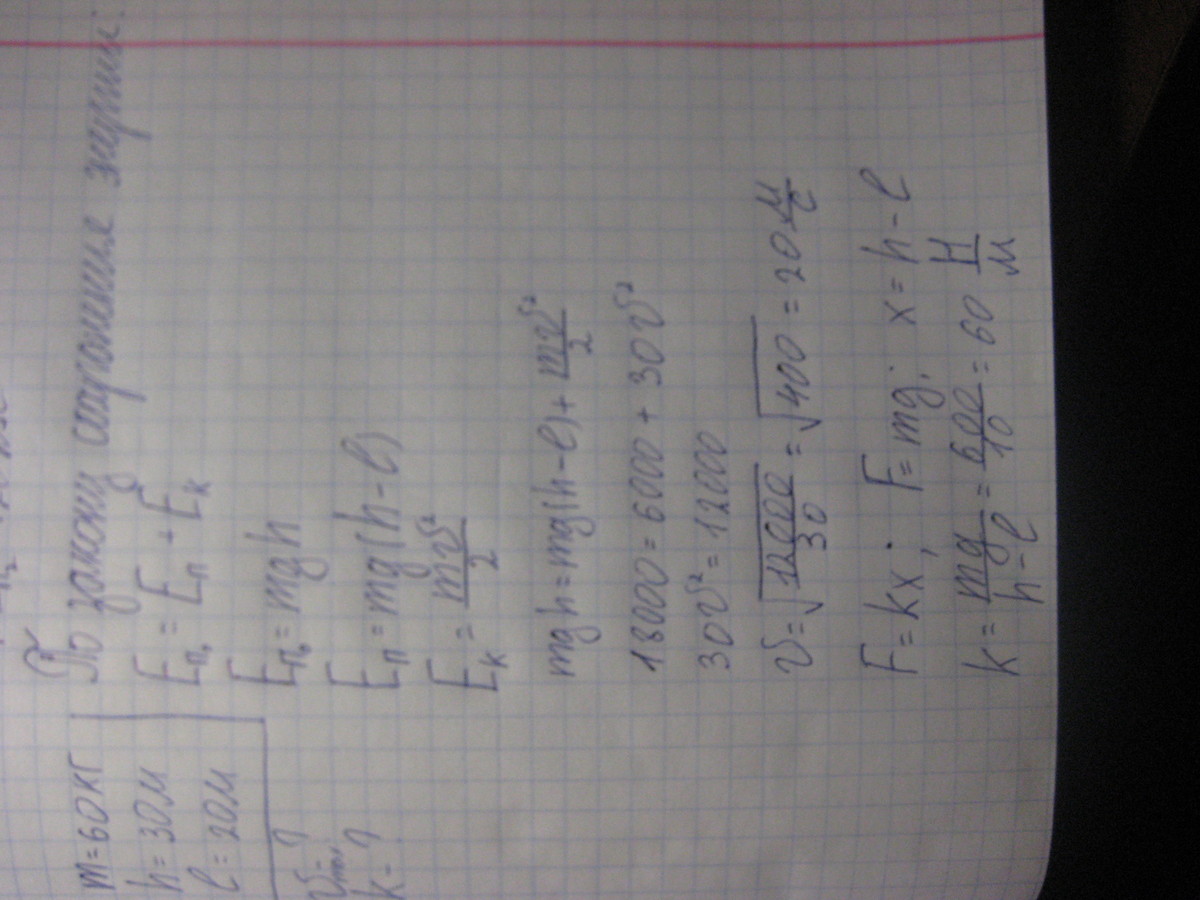 m=60кг
h=30м
l=20м
k-?
По закону сохранения энергии.
Eп₀=Eп+Eк
Eп₀=mgh
Eп=mg(h-l)
Eк=mv²/2
mgh=mg(h-l)+mv²/2
18000=6000+30v²
30v²=12000
v=√12000/30=√400=20 м/с
F=kx; F=mg; x=h-l
k=mg/h-l=600/10=60 Н/м